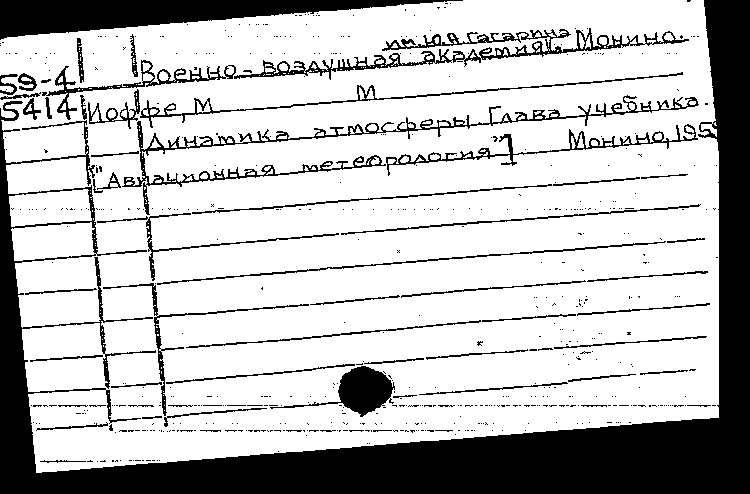 им. Ю.А. Гагарина
59-4 Военно-воздушная академия. Монино.
5414 Иоффе, М М
Динамика атмосферы. Глава учебника.
["Авиационная метеорология"] Монино, 195